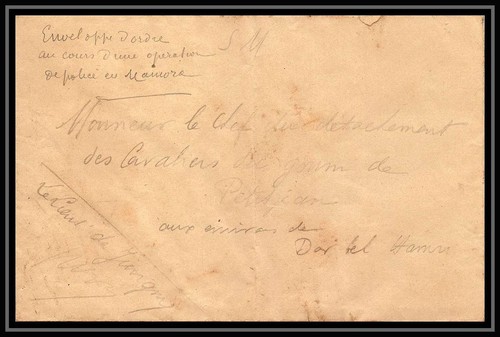 Enveloppe d'ordre
S M
au cours d'une operation
de police en Mamora
Monsieur le Chef du détachement
des Cavaliers du goum de
Petitjean
aux environs de
Dar bel Hamri
de